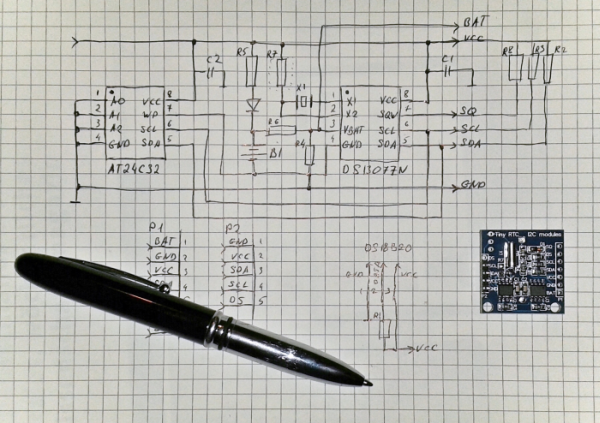 BAT
VCC
C2
R5
R7
C1
R8
R3
R2
X1
1 A0 VCC 8
2 A1 WP 7
3 A2 SCL 6
4 GND SDA 5
AT24C32
R6
B1
R4
1 X1 VCC 8
2 X2 SQW 7
3 VBAT SCL 6
4 GND SDA 5
DS1307N
SQ
SCL
SDA
GND
P1
BAT 1
GND 2
VCC 3
4
P2
GND 1
VCC 2
SDA 3
SCL 4
DS 5
DS18B20
GND
VCC
1 2 3
R1
VCC
Tiny RTC I2C modules